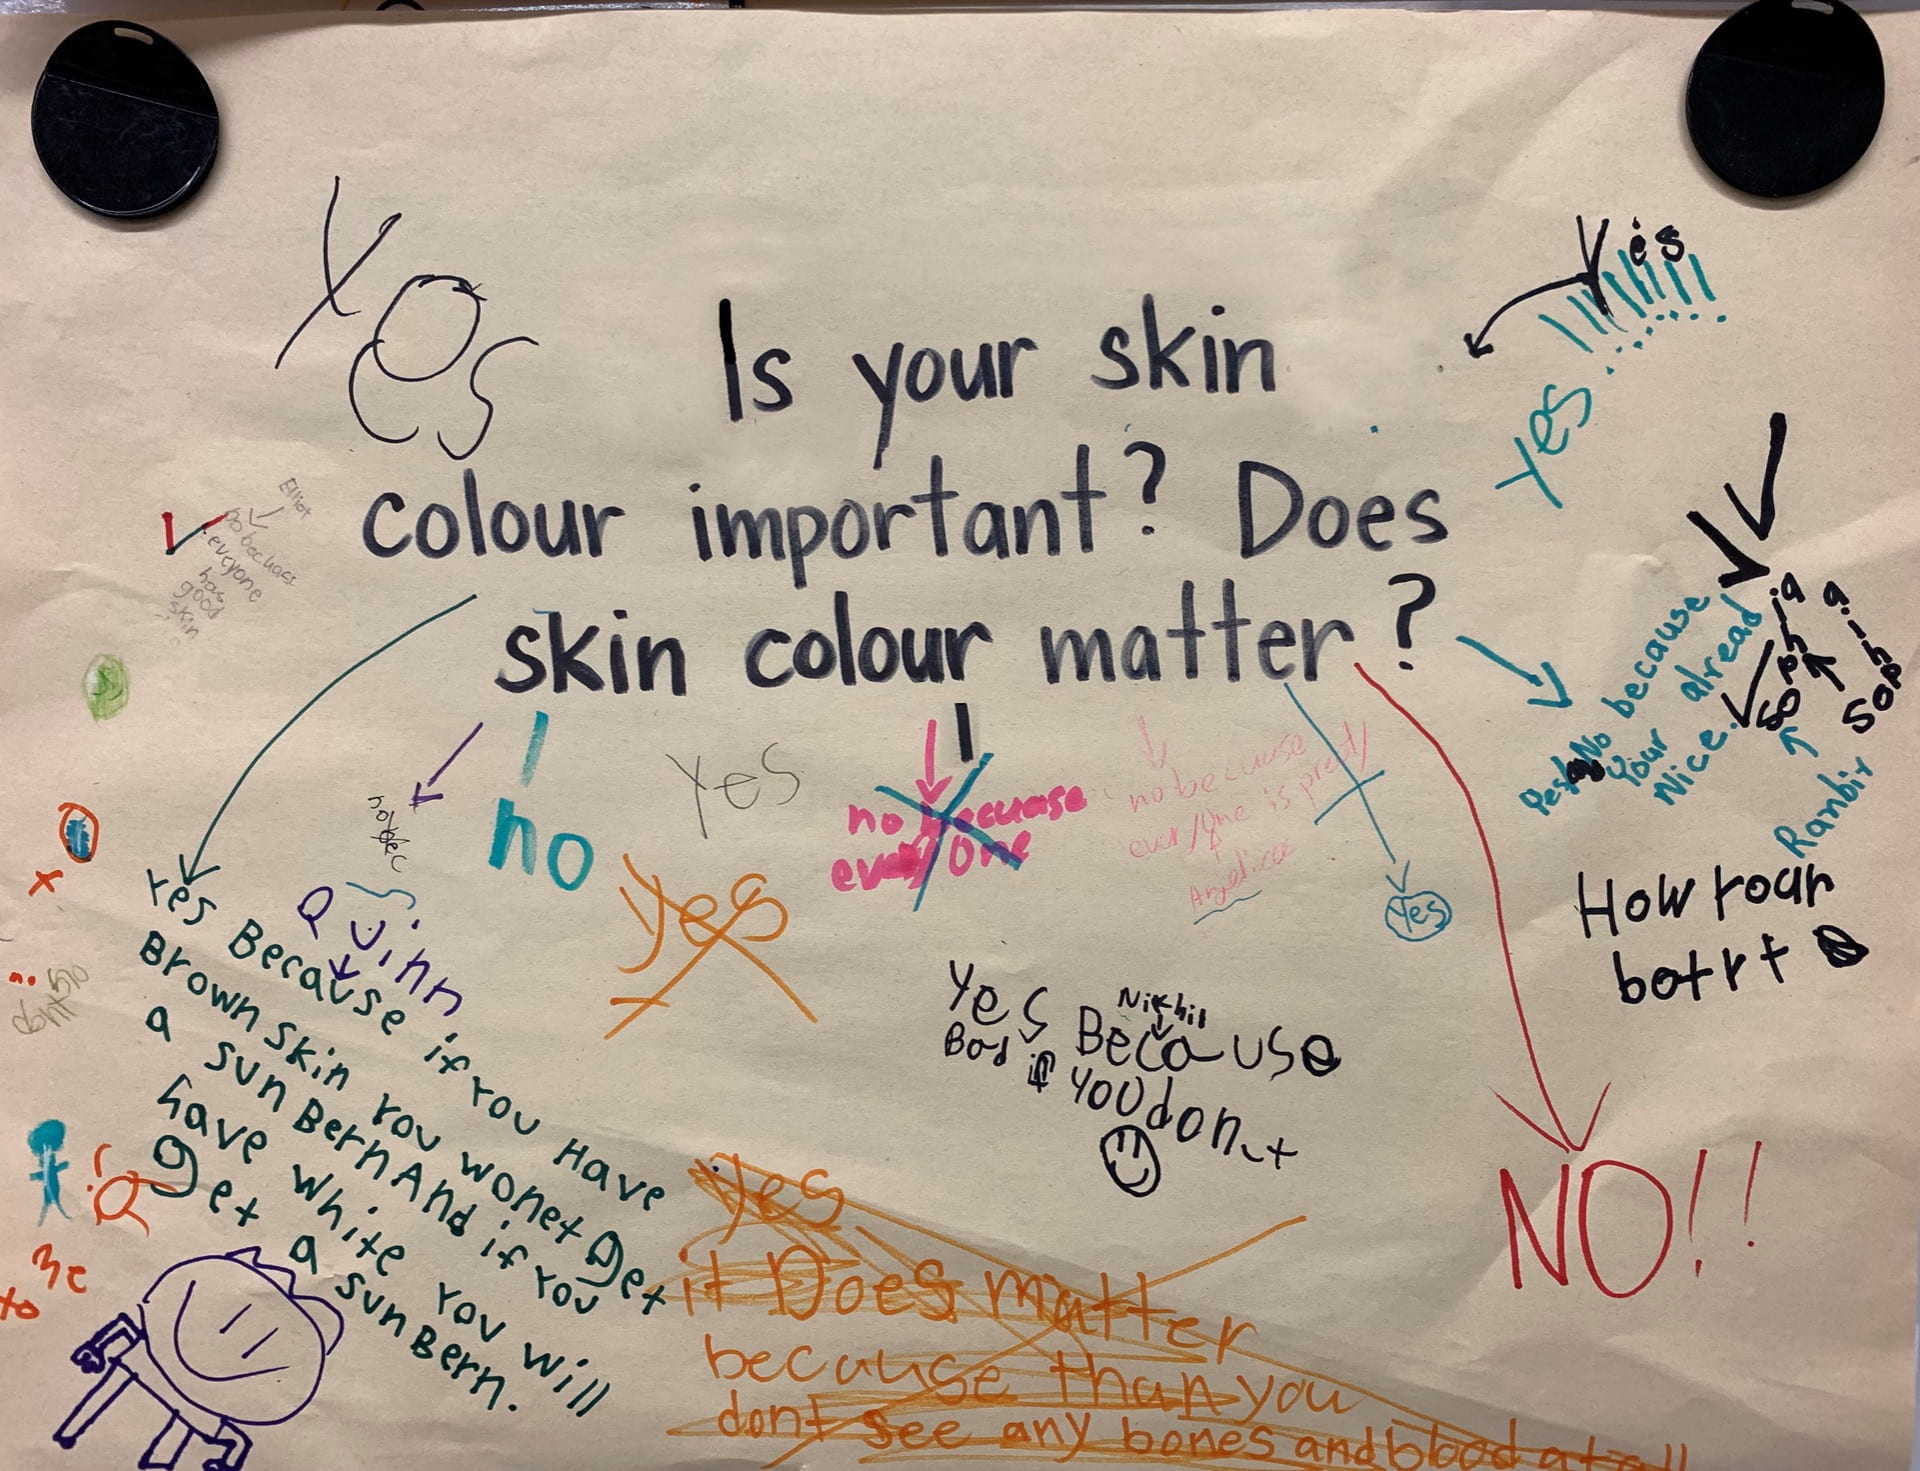 Yes
Yes
Is your skin
colour important? Does
skin colour matter?
Yes!!!!!!!
Elliot
no becuase
everyone
has
good
skin
no because
your alread
Nice.
Sophia
Sophia
Ranbir
no
Yes
no becuase
everyone
no becuase
everyone is pretty
Angelica
Yes
Yes
Quinn
Yes Because if you Have
Brown skin you wonet get
a sun Bern And if you
have white you will
get a sun Bern.
Yes Because
Nikhil
Bad if you don-t
How
NO!!
Yes
it Does matter
because than you
dont see any bones and blood at all